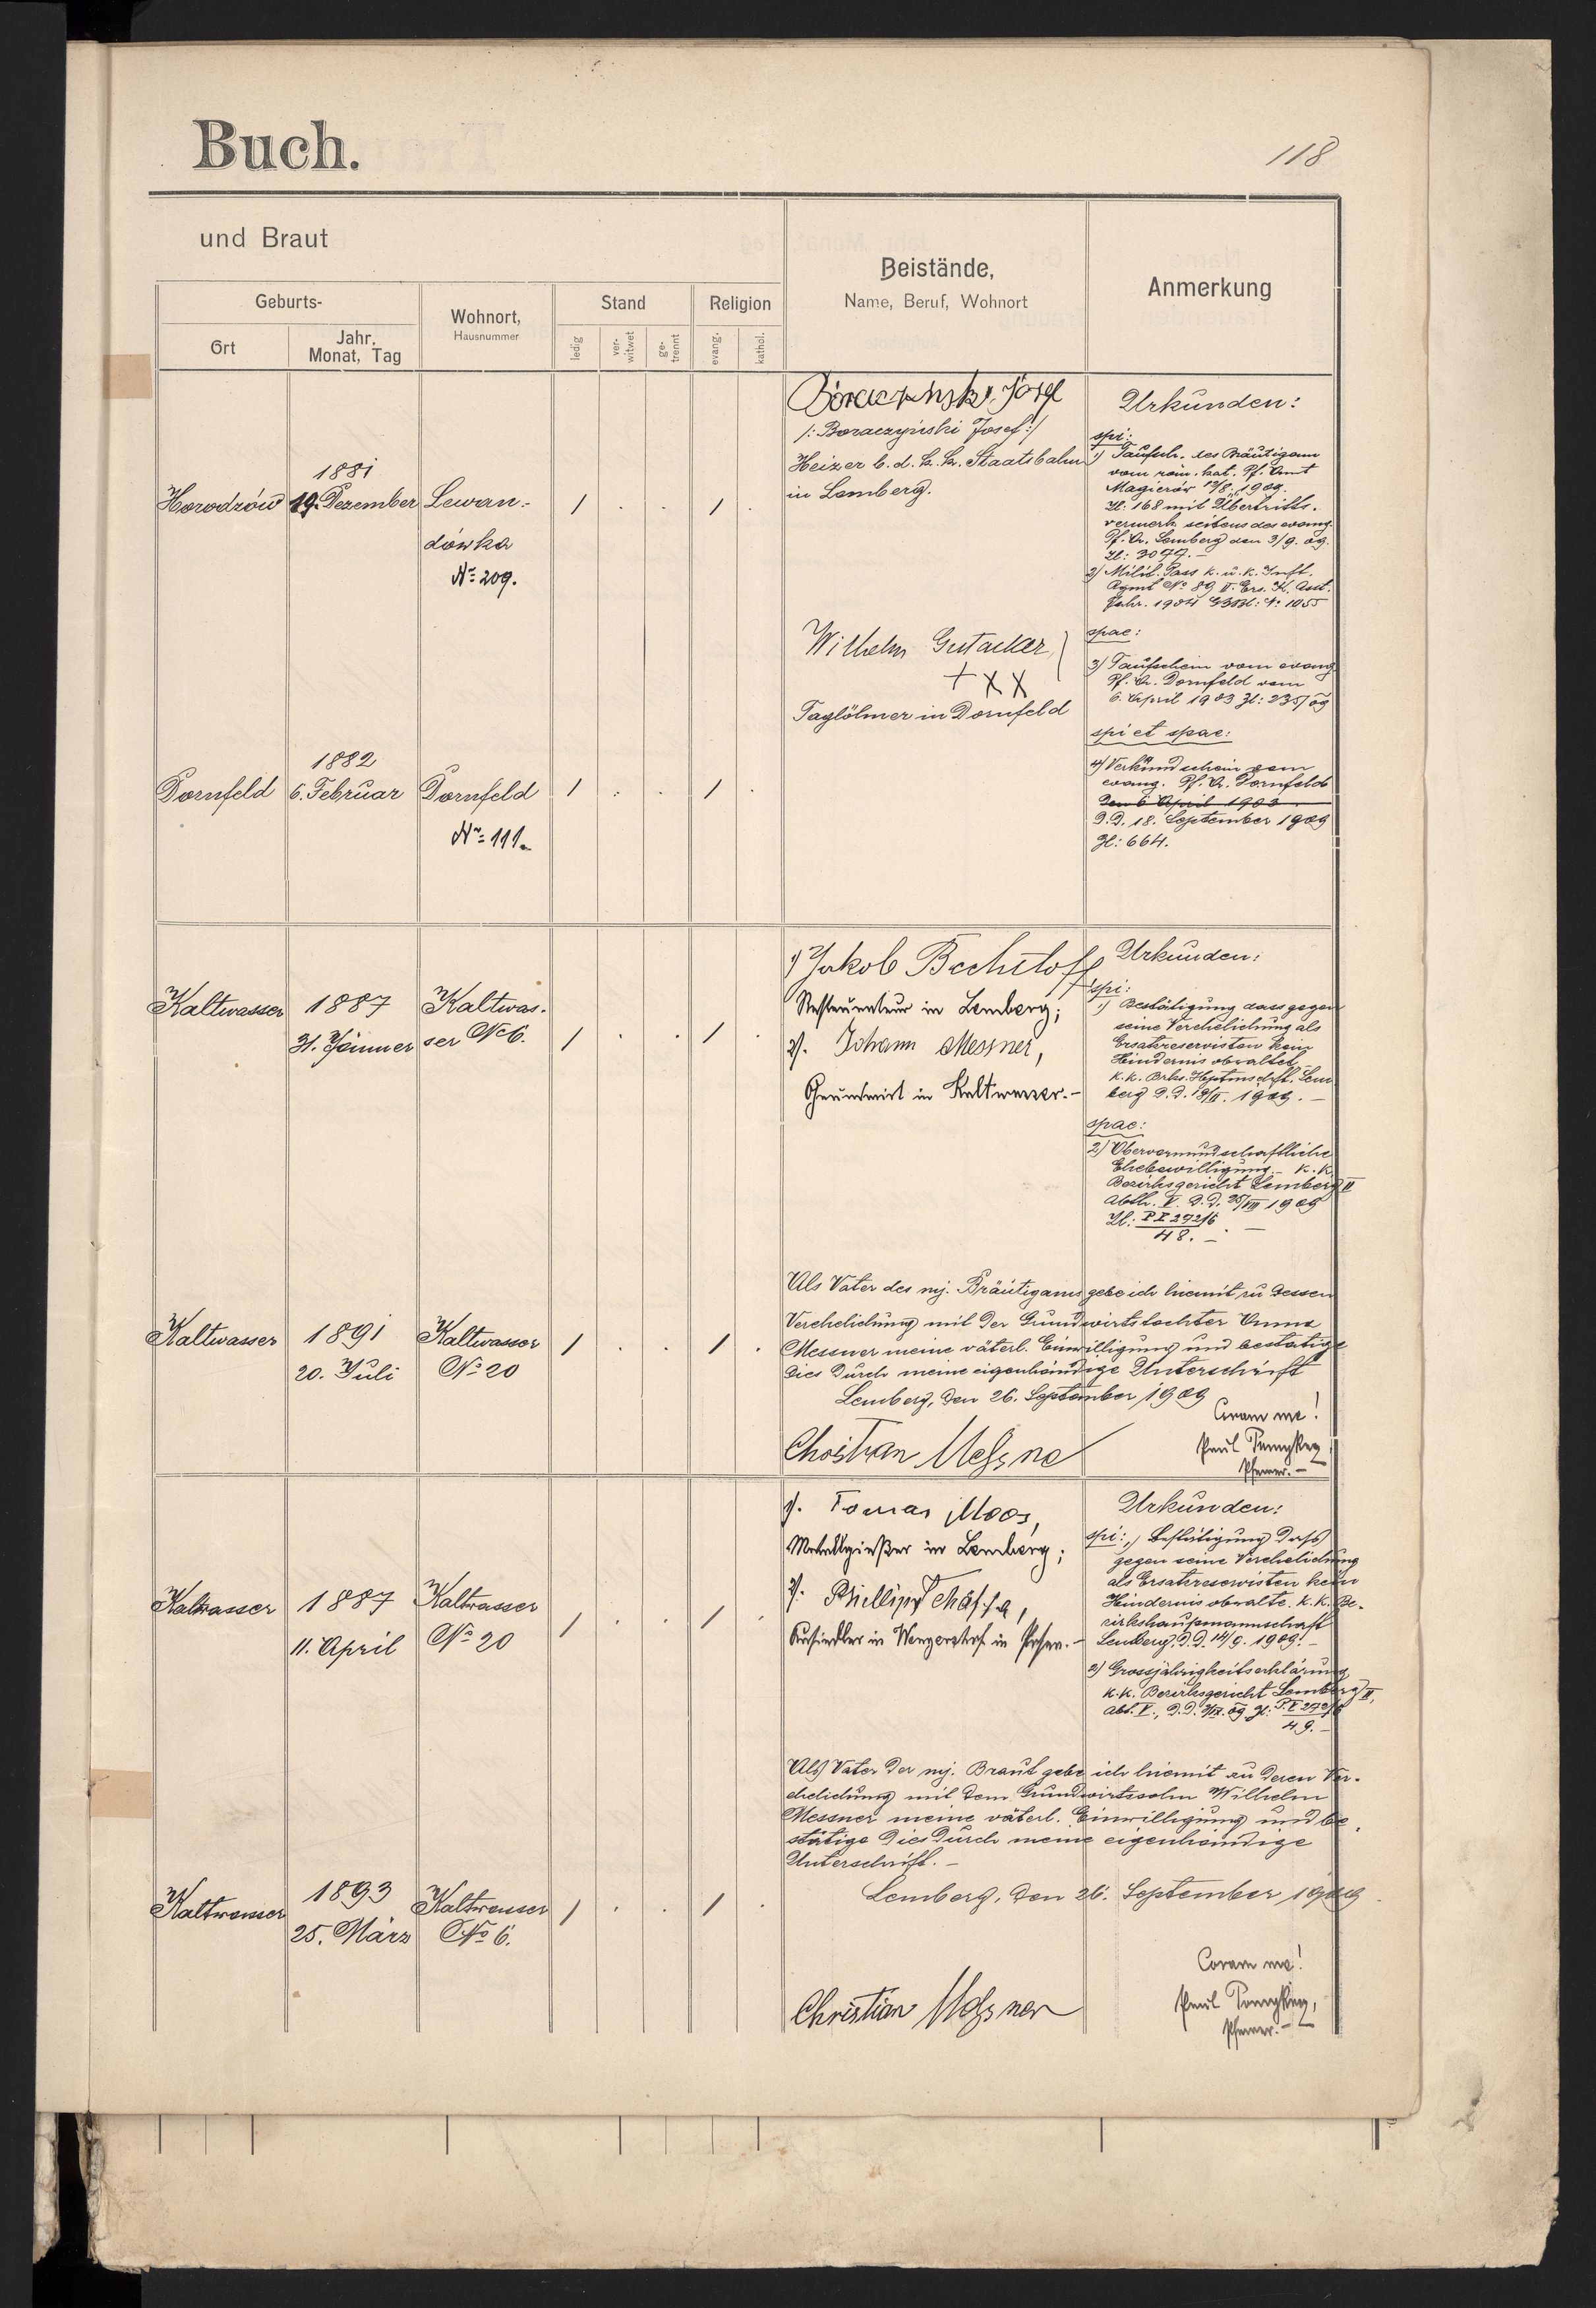 Buch.
118
und Braut
Geburts-
Ort
Jahr,
Monat, Tag
Wohnort,
Hausnummer
Stand
ledig
ver-
witwet
ge-
trennt
Religion
evang.
kathol.
Beistände,
Name, Beruf, Wohnort
Anmerkung
Horodzów
1881
19. Dezember
Lewan-
dówka
No 209.
1 . . 1 .
/: Boraczyński Josef :/
Heizer b. d. k. k. Staatsbahn
in Lemberg.
Urkunden:
spi:
1) Taufsch. des Bräutigam
vom röm. kat. Pf. Amt
Magierów 12/8. 1909.
Zl: 168 mit Übertritts-
vermerk seitens des evang.
Pf. A. Lemberg den 3/9. 09.
2) Milit. Pass k. u. k. Inft.
Wilhelm Gutacker
+ X X
Taglöhner in Dornfeld
spae:
3) Taufschein vom evang
Pf. A. Dornfeld vom
6. April 1903 Zl: 235/09
spi et spae:
Dornfeld
1882
6. Februar
Dornfeld
No 111.
1 . . 1 .
4) Verkündschein vom
evang. Pf. A. Dornfeld
den 6 April 1903
d. d. 18. September 1909
Zl: 664.
Kaltwasser
1887
31. Jänner
Kaltwas-
ser No 6.
1 . . 1 .
1) Jakob Bechtloff
Restaurateur in Lemberg;
2). Johann Messner,
Grundwirt in Kaltwasser. -
Urkunden:
spi:
1) Bestätigung dass gegen
seine Verehelichung als
Ersatzreservisten kein
Hindernis obwaltet
k. k. Bezks. Hptmschft. Lem
berg d. d.
1909. -
spae:
2) Obervormundschaftliche
Ehebewilligung - k. k.
Bezirksgericht Lemberg II
Abth. V. d. d. 25/VIII 1909
48. -
Kaltwasser
1891
20. Juli
Kaltwasser
No 20
1 . . 1 .
Als Vater des mj. Bräutigams gebe ich hiemit zu dessen
Verehelichung mit der Grundwirtstochter Anna
Messner meine väterl. Einwilligung und bestätige
dies durch meine eigenhändige Unterschrift
Lemberg, den 26. September 1909
Coram me!
Christian Messne
Pfarrer. -
Kaltwasser
1887
11. April
Kaltwasser
No 20
1 . . 1 .
1). Tomas Moos,
Metallgießer in Lemberg;
Ansiedler in
in Posen. -
Urkunden:
spi: 1) Bestätigung dass
gegen seine Verehelichung
als Ersatzreservisten kein
Hindernis obwalte. k. k. Be-
zirkshauptmannschaft
Lemberg, d. d. 14/9. 1909. -
2) Grossjährigkeitserklärung
k. k. Bezirksgericht Lemberg II,
49. -
Als Vater der mj. Braut gebe ich hiemit zu deren Ver-
ehelichung mit dem Grundwirtssohn Wilhelm
Messner meine väterl. Einwilligung und be-
stätige dies durch meine eigenhändige
Unterschrift. -
Lemberg, den 26. September 1909
Kaltwasser
1893
25. März
Kaltwasser
No 6.
1 . . 1 .
Coram me!
Christian Messner
Pfarrer. -